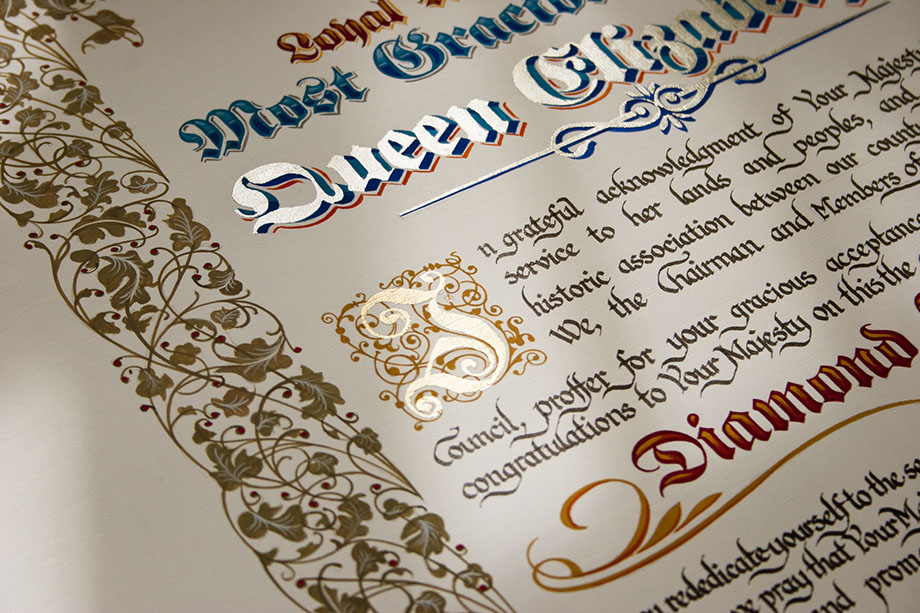 Loyal
Most
Queen
In grateful acknowledgment of Your
service to her lands and peoples, and
historic association between our
We, the Chairman and Members of
Council, proffer for your gracious
congratulations to Your Majesty on this the
Diamond
rededicate yourself to the
pray that Your
and